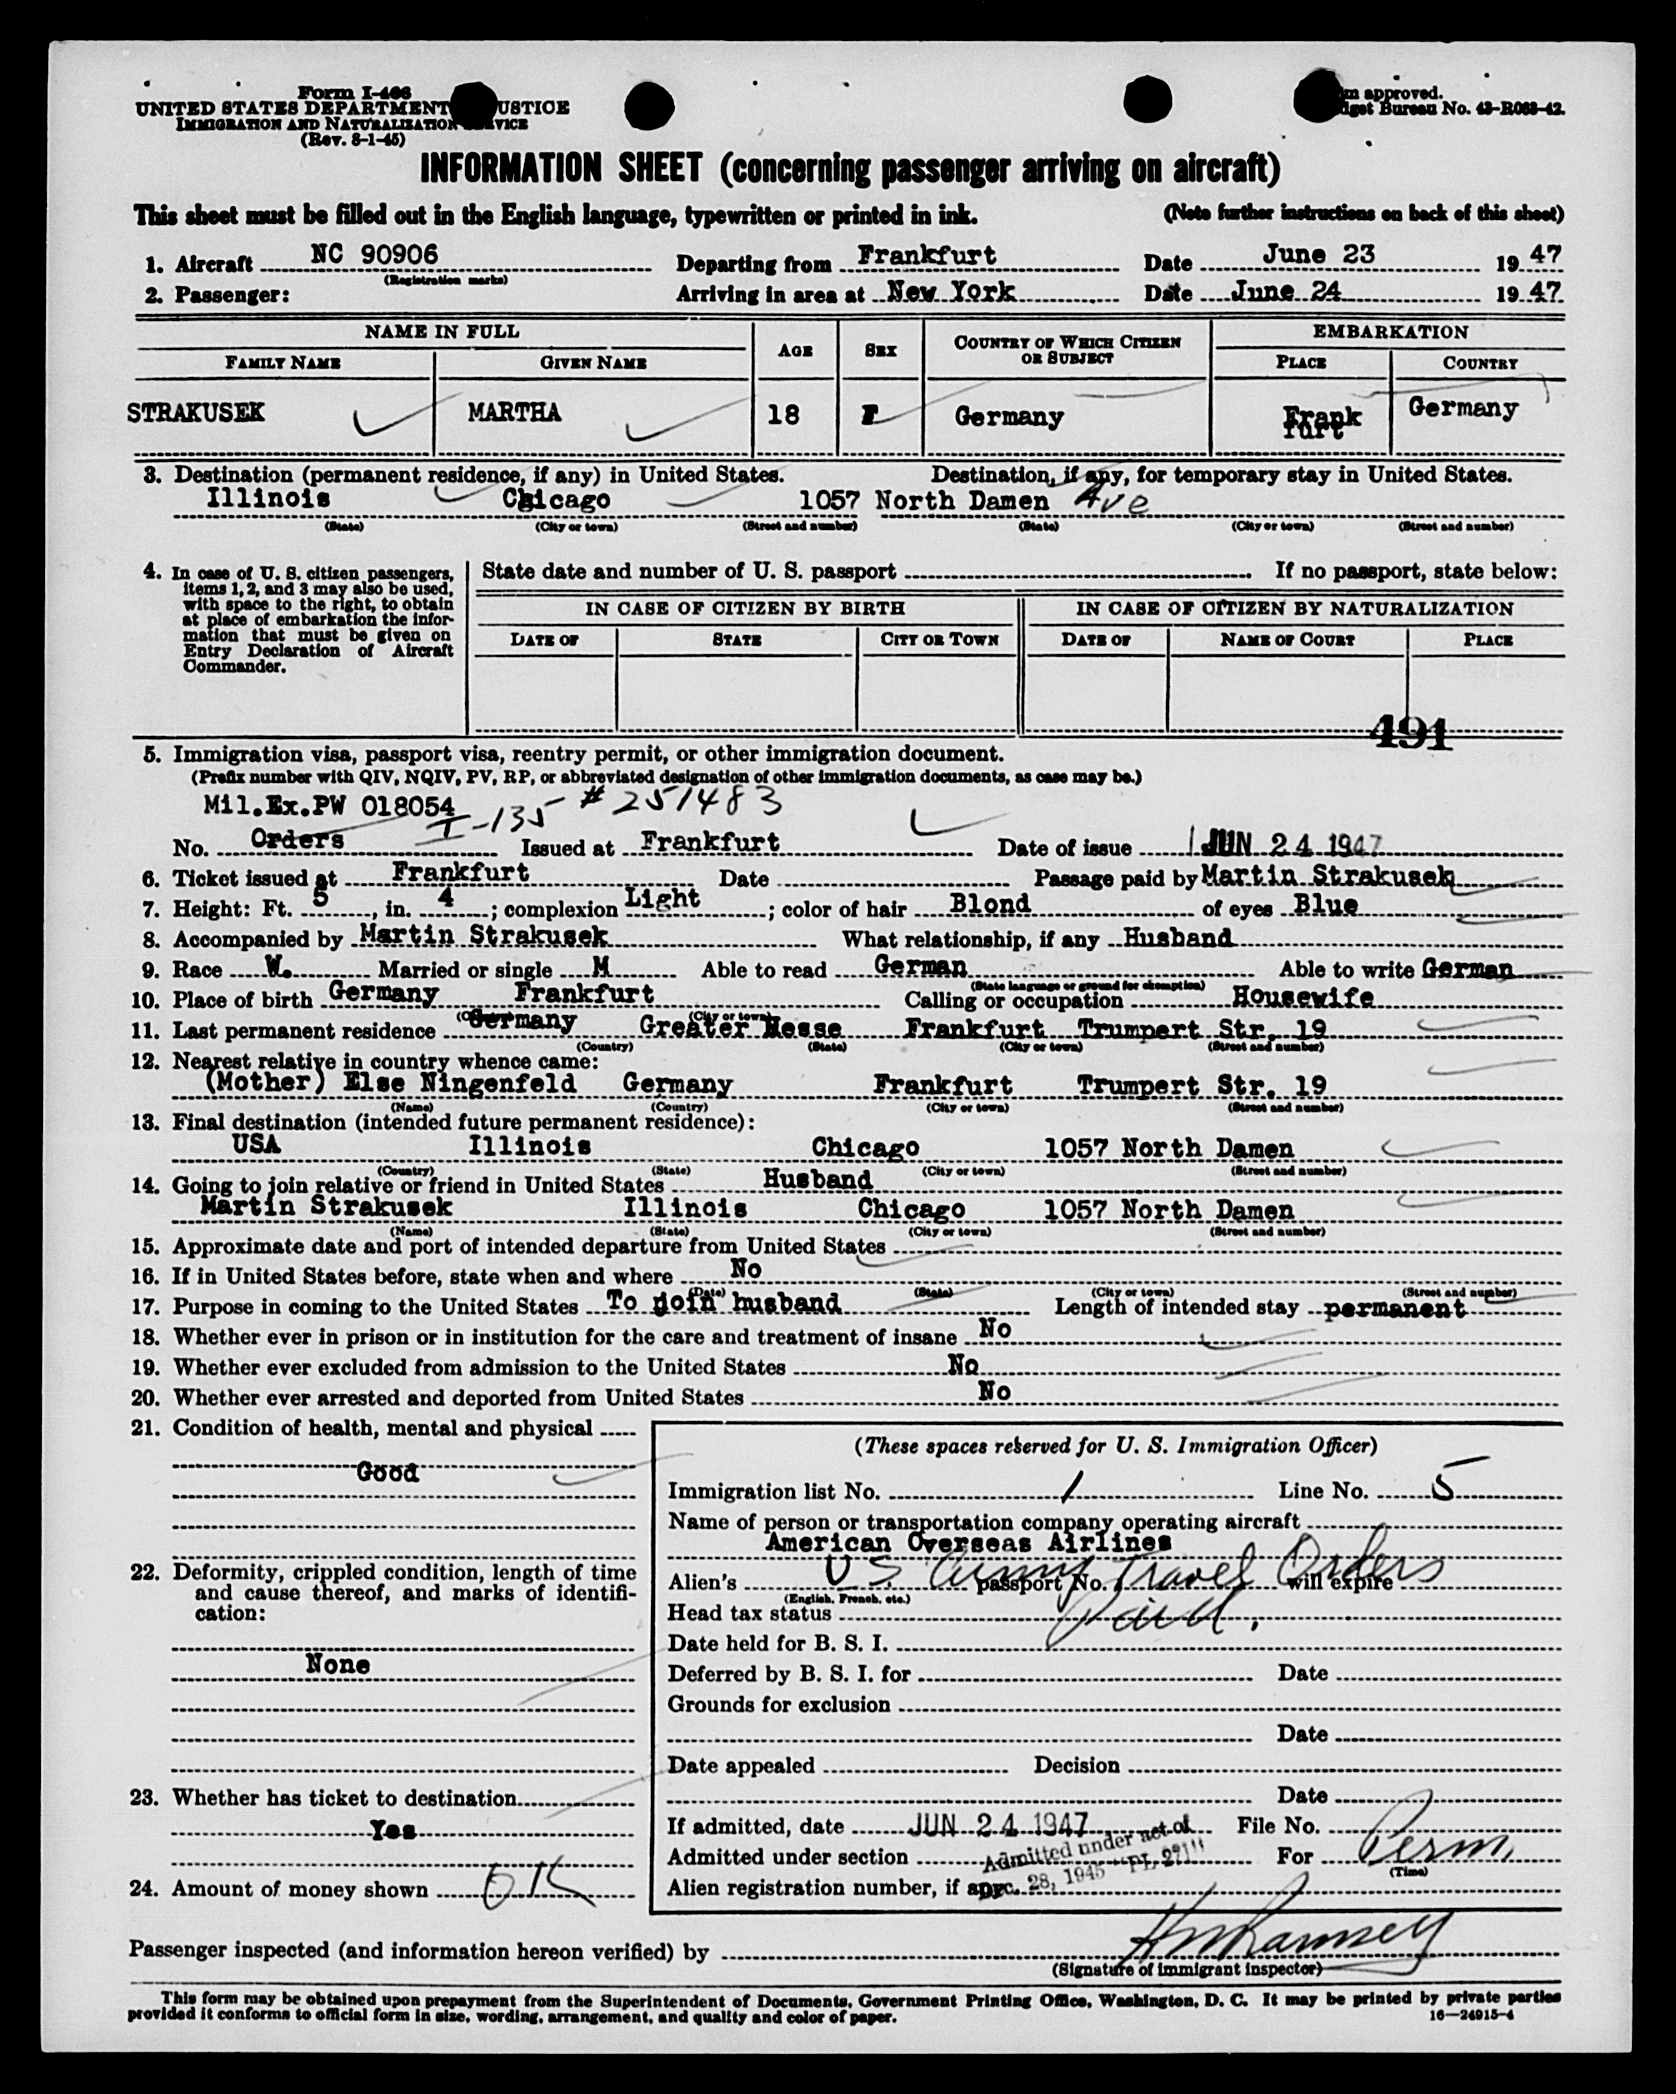 Form I-466
UNITED STATES DEPARTMENT USTICE
IMMIGRATION AND NATURALIZATION VICE
(Rev. 8-1-45)
m approved.
dget Bureau No. 43-R063-42.
INFORMATION SHEET (concerning passenger arriving on aircraft)
This sheet must be filled out in the English language, typewritten or printed in ink. (Note further instructions on back of this sheet)
1. Aircraft NC 90906 Departing from Frankfurt Date June 23 19 47
(Registration marks)
2. Passenger: Arriving in area at New York Date June 24 19 47
NAME IN FULL AGE SEX COUNTRY OF WHICH CITIZEN OR SUBJECT EMBARKATION
FAMILY NAME GIVEN NAME PLACE COUNTRY
STRAKUSEK MARTHA 18 F Germany Frank furt Germany
3. Destination (permanent residence, if any) in United States. Destination, if any, for temporary stay in United States.
Illinois Chicago 1057 North Damen Ave
(State) (City or town) (Street and number) (State) (City or town) (Street and number)
4. In case of U. S. citizen passengers, items 1, 2, and 3 may also be used, with space to the right, to obtain at place of embarkation the information that must be given on Entry Declaration of Aircraft Commander.
State date and number of U. S. passport If no passport, state below:
IN CASE OF CITIZEN BY BIRTH IN CASE OF CITIZEN BY NATURALIZATION
DATE OF STATE CITY OR TOWN DATE OF NAME OF COURT PLACE
491
5. Immigration visa, passport visa, reentry permit, or other immigration document.
(Prefix number with QIV, NQIV, PV, RP, or abbreviated designation of other immigration documents, as case may be.)
Mil.Ex.PW 018054 I-135 # 251483
No. Orders Issued at Frankfurt Date of issue JUN 24 1947
6. Ticket issued at Frankfurt Date Passage paid by Martin Strakusek
7. Height: Ft. 5, in. 4; complexion Light; color of hair Blond of eyes Blue
8. Accompanied by Martin Strakusek What relationship, if any Husband
9. Race W. Married or single M Able to read German Able to write German
(State language or ground for exemption)
10. Place of birth Germany Frankfurt Calling or occupation Housewife
(City or town)
11. Last permanent residence Germany Greater Hesse Frankfurt Trumpert Str. 19
(Country) (State) (City or town) (Street and number)
12. Nearest relative in country whence came:
(Mother) Else Ningenfeld Germany Frankfurt Trumpert Str. 19
(Name) (Country) (City or town) (Street and number)
13. Final destination (intended future permanent residence):
USA Illinois Chicago 1057 North Damen
(Country) (State) (City or town) (Street and number)
14. Going to join relative or friend in United States Husband
Martin Strakusek Illinois Chicago 1057 North Damen
(Name) (State) (City or town) (Street and number)
15. Approximate date and port of intended departure from United States
16. If in United States before, state when and where No
(Date) (State) (City or town) (Street and number)
17. Purpose in coming to the United States To goin husband Length of intended stay permanent
18. Whether ever in prison or in institution for the care and treatment of insane No
19. Whether ever excluded from admission to the United States No
20. Whether ever arrested and deported from United States No
21. Condition of health, mental and physical
Good
22. Deformity, crippled condition, length of time and cause thereof, and marks of identification:
None
23. Whether has ticket to destination
Yes
24. Amount of money shown OK
(These spaces reserved for U. S. Immigration Officer)
Immigration list No. 1 Line No. 5
Name of person or transportation company operating aircraft
American Overseas Airlines
Alien's US Army passport No. Travel Orders will expire
(English, French, etc.)
Head tax status Paid.
Date held for B. S. I.
Deferred by B. S. I. for Date
Grounds for exclusion
Date
Date appealed Decision
Date
If admitted, date JUN 24 1947 File No.
Admitted under section Admitted under act of For Perm.
(Time)
Alien registration number, if any Dec. 28, 1945 "PL 271"
Passenger inspected (and information hereon verified) by HM Ramsey
(Signature of immigrant inspector)
This form may be obtained upon prepayment from the Superintendent of Documents, Government Printing Office, Washington, D. C. It may be printed by private parties
provided it conforms to official form in size, wording, arrangement, and quality and color of paper. 16—24915-4